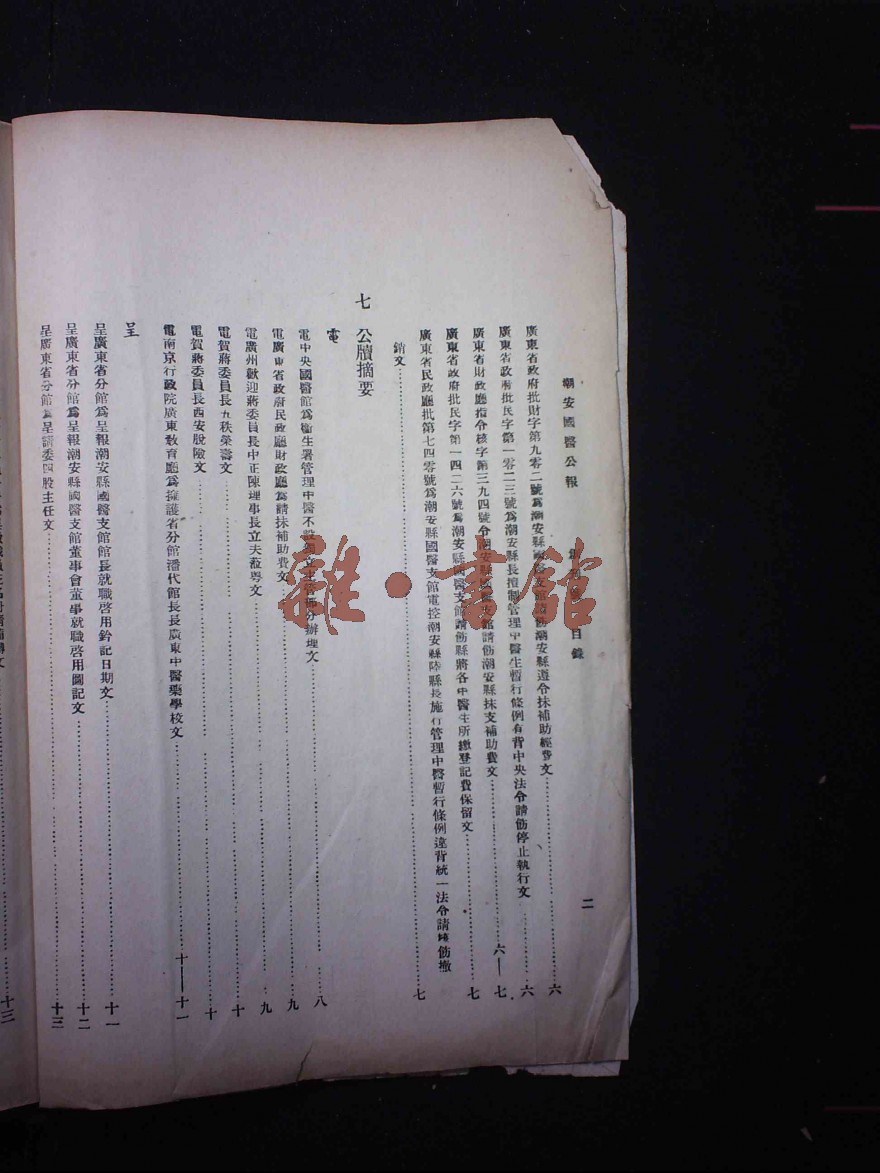 潮安國醫公報 目錄 二
廣東省政府批財字第九零二號爲潮安縣國醫支館請飭潮安縣遵令抹補助經費文 六
廣東省政府批民字第一零二三號爲潮安縣長擅制管理中醫生暫行條例有背中央法令請飭停止執行文 六
廣東省財政廳指令核字第三九四號令潮安縣國醫支館請飭潮安縣抹支補助費文 六—七
廣東省政府批民字第一四二六號爲潮安縣國醫支館請飭縣將各中醫生所繳登記費保留文 七
廣東省民政廳批第七四零號爲潮安縣國醫支館電控潮安縣陸縣長施行管理中醫暫行條例違背統一法令請 飭撤
銷文 七
七 公牘摘要
電
電中央國醫館爲衞生署管理中醫不設獨立主管部分辦理文 八
電廣東省政府民政廳財政廳爲請抹補助費文 九
電廣州歡迎蔣委員長中正陳理事長立夫蒞粵文 九
電賀蔣委員長五秩榮壽文 十
電賀蔣委員長西安脫險文 十
電南京行政院廣東教育廳爲擁護省分館潘代館長長廣東中醫藥學校文 十—十一
呈
呈廣東省分館爲呈報潮安縣國醫支館館長就職啓用鈐記日期文 十一
呈廣東省分館爲呈報潮安縣國醫支館董事會董事就職啓用圖記文 十二
呈廣東省分館爲呈請委四股主任文 十三
十三
雜·書館